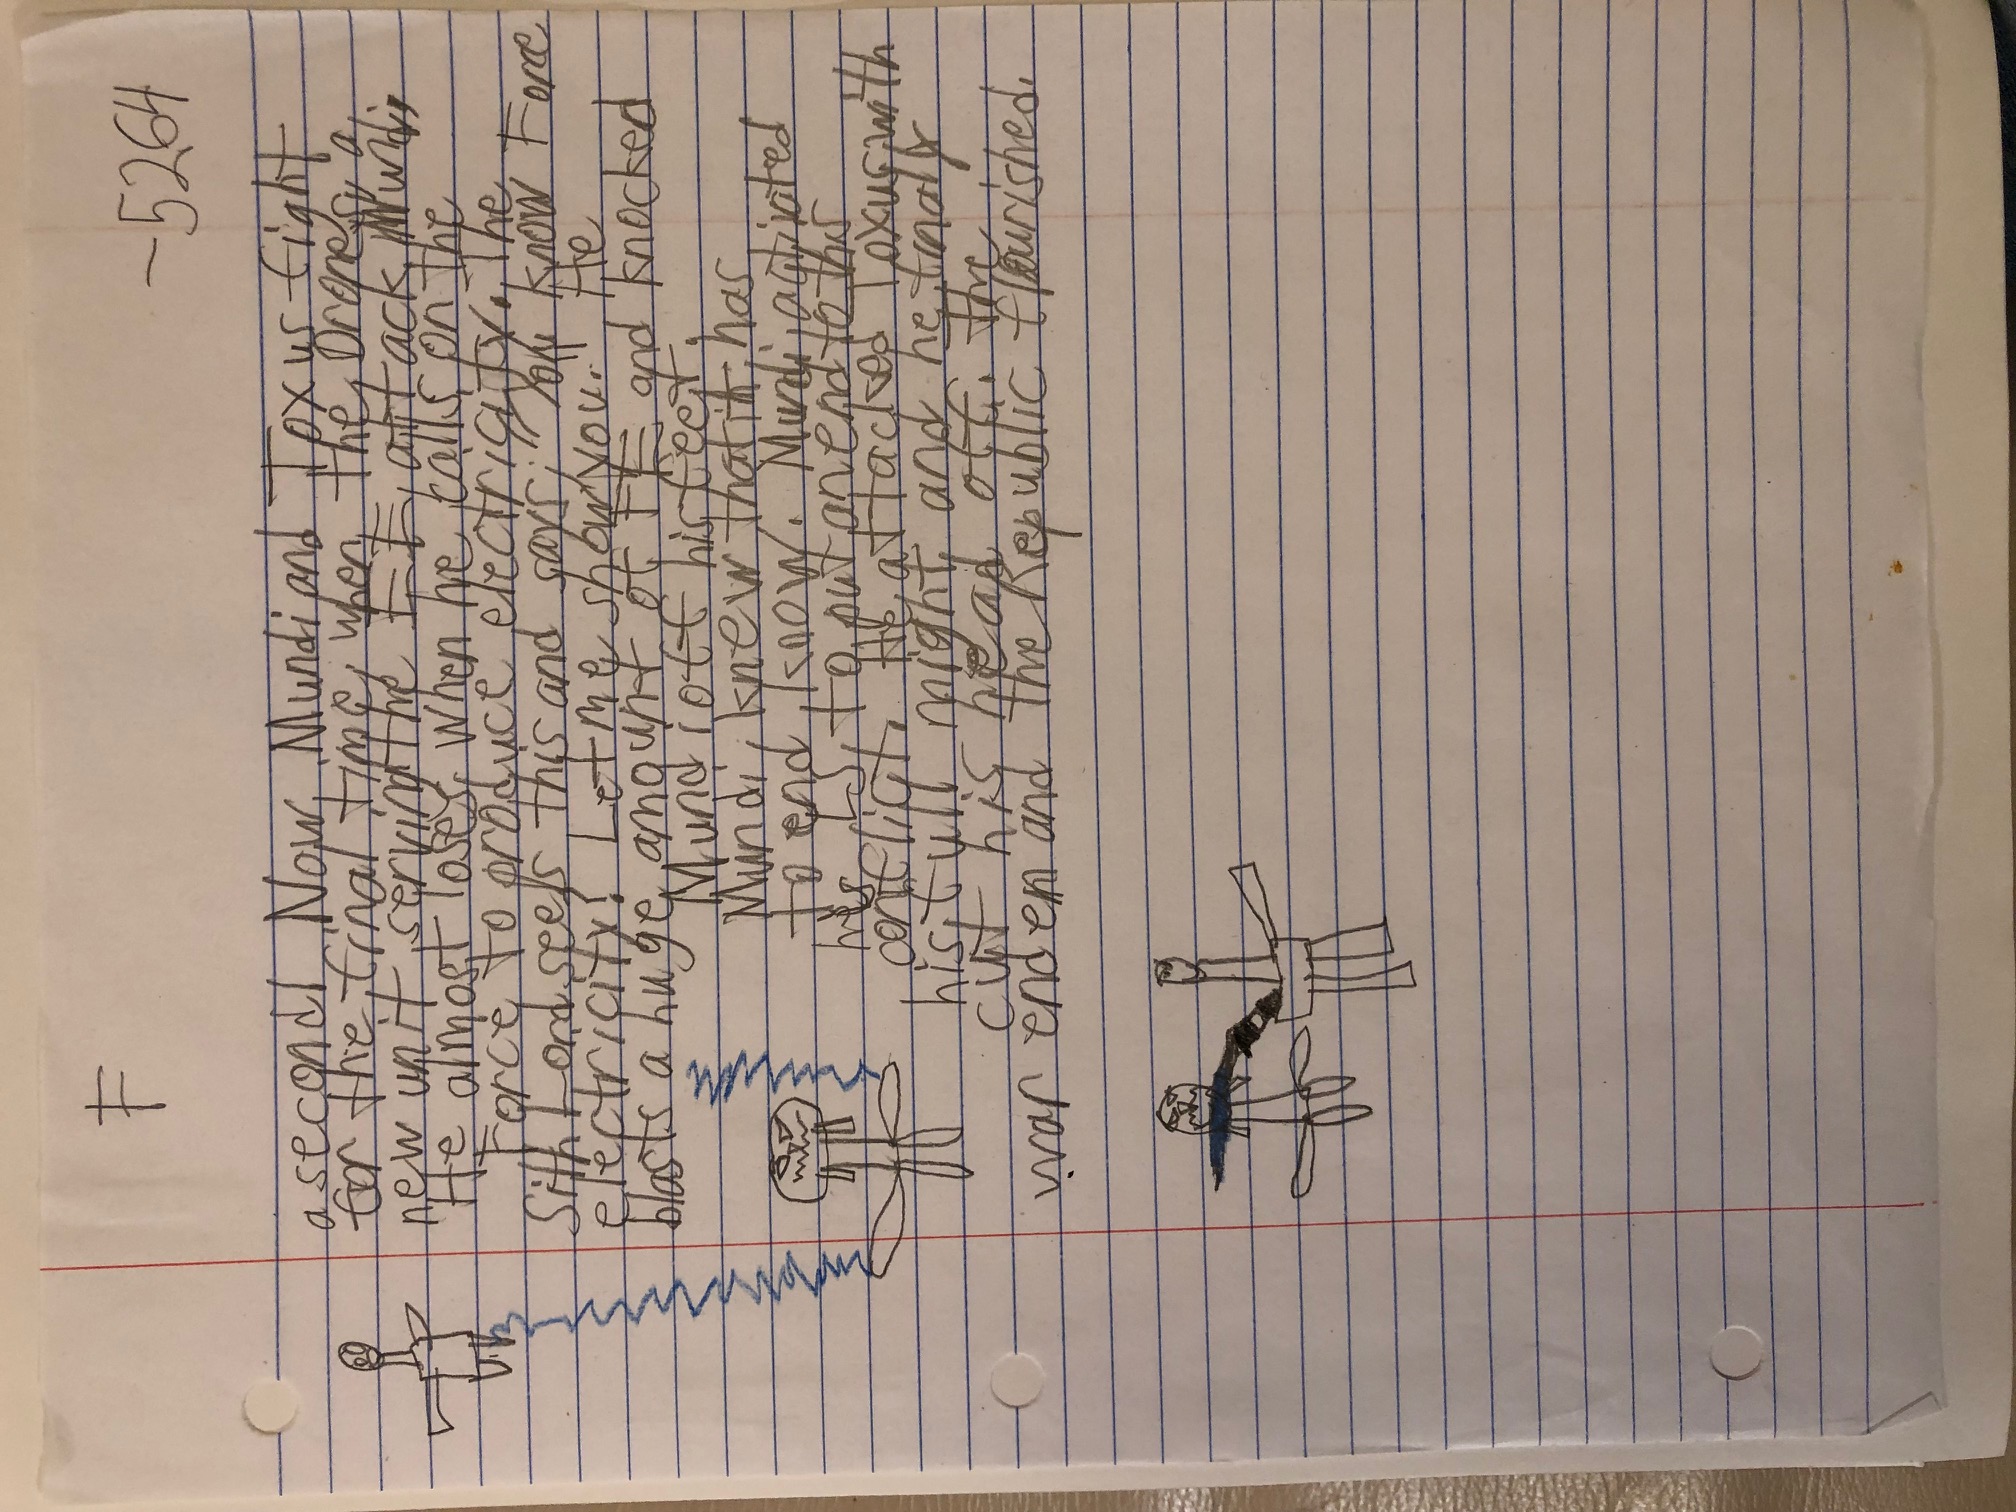 F
-5264
a second! Now, Mundi and Toxus fight
for the final time, when the Drones, a
new unit serving the EE, attack Mundi,
He almost loses, when he calls on the
Force to produce electricity. The
Sith Lord sees this and says; "You know Force
electricity! Let me show you." He
blasts a huge amount of FE and knocked
Mundi off his feet.
Mundi knew that it has
to end know. Mundi activated
his LS, to put an end to this
conflict. He attacked Toxus with
his full might and he finaly
cut his head off. The
war endem and the Republic flourished.